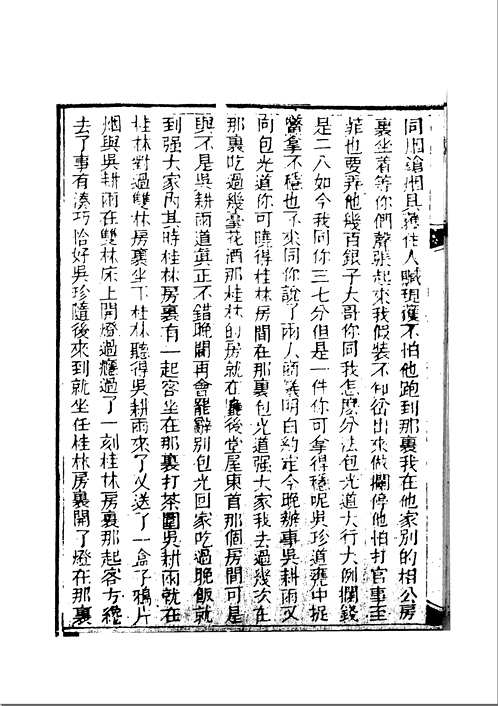 同烟槍烟具獲住人贓現獲不怕他跑到那裏我在他家別的相公房
裏坐着等你們聲張起來我假裝不知岔出來做攔停他怕打官事至
菲也要弄他幾百銀子大哥你同我怎麽分法包光道大行大例攔錢
是二八如今我同你三七分但是一件你可拿得穩呢吳珍道甕中捉
鱉拿不穩也不來同你說了兩人商議明白約定今晚辦事吳耕雨又
向包光道你可曉得桂林房間在那裏包光道强大家我去過幾次在
那裏吃過幾臺花酒那桂林的房就在後堂屋東首那個房間可是
與不是吳耕雨道眞正不錯晚間再會罷辭別包光回家吃過晚飯就
到强大家内其時桂林房裏有一起客坐在那裏打茶圍吳耕雨就在
桂林對過雙林房裏坐下桂林聽得吳耕雨來了又送了一盒子鴉片
烟與吳耕雨在雙林床上開燈過癮過了一刻桂林房裏那起客方纔
去了事有湊巧恰好吳珍隨後來到就坐在桂林房裏開了燈在那裏